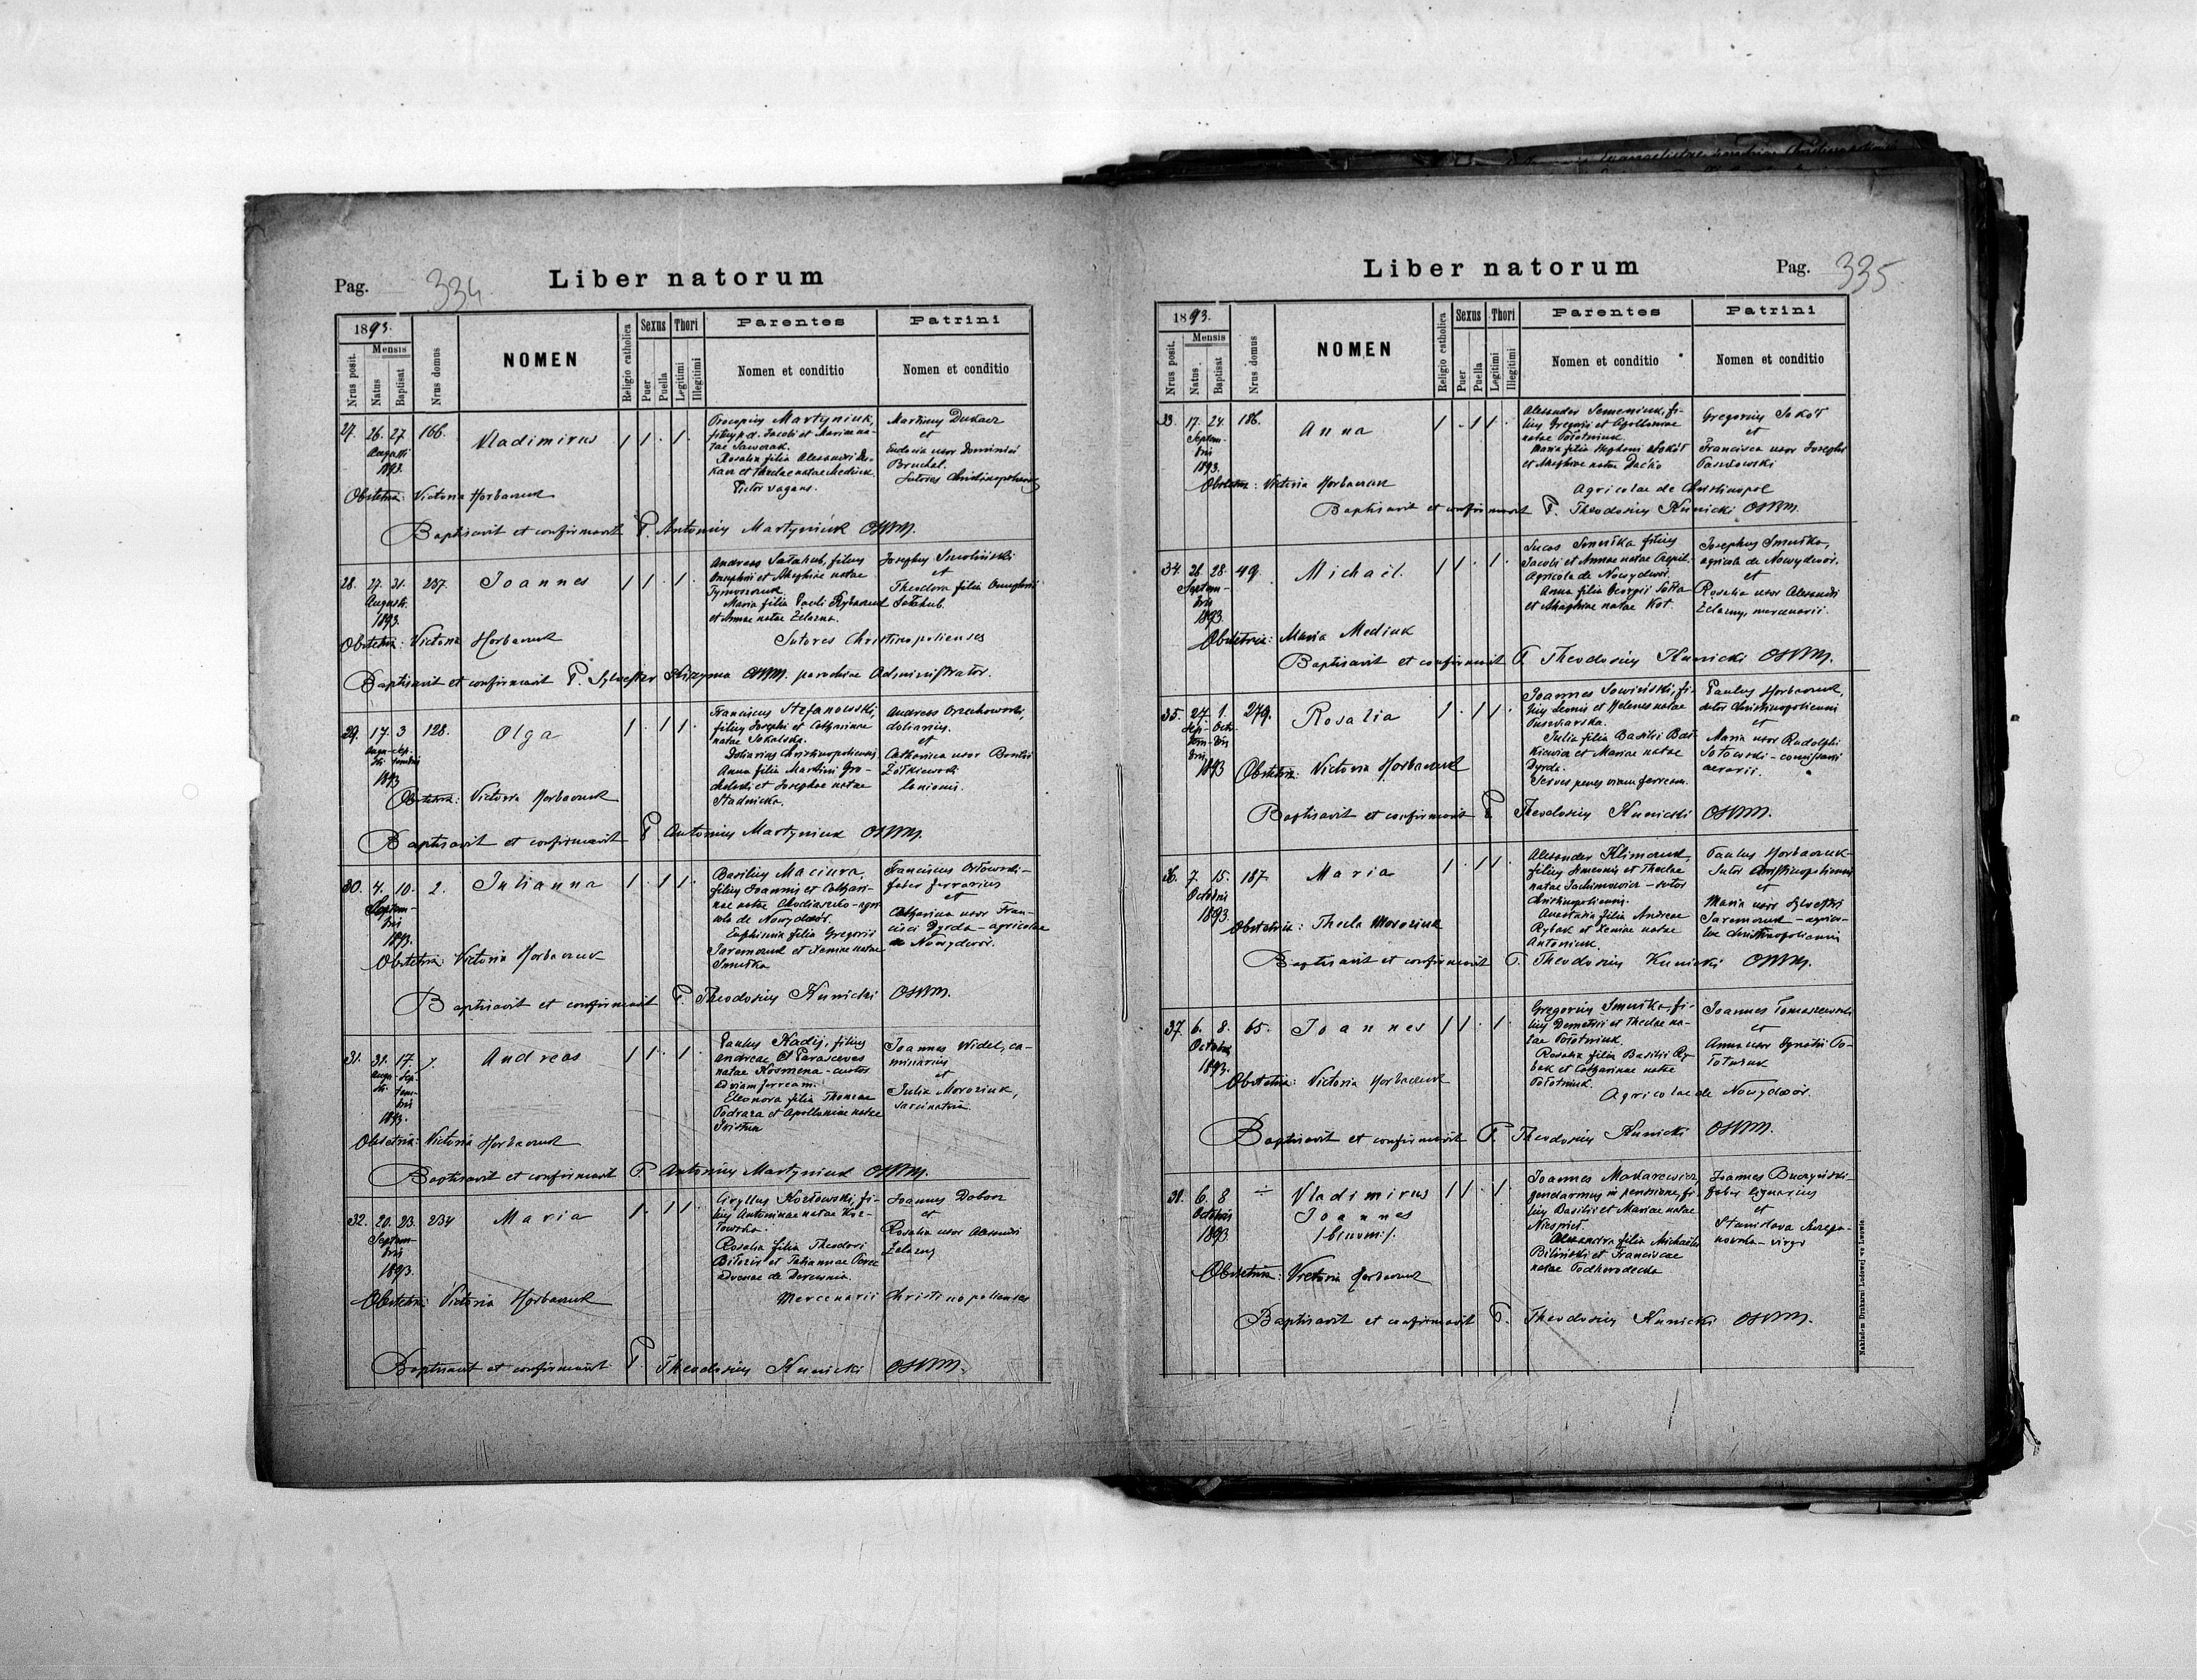 Pag. 334 Liber natorum
1893.
Nrus posit.
Mensis
Natus
Baptisat
Nrus domus
NOMEN
Religio catholica
Sexus
Puer
Puella
Thori
Legitimi
Illegitimi
Parentes
Nomen et conditio
Patrini
Nomen et conditio
27. 26. 27 166. Vladimirus 1 1 . 1 .
Augusti
1893.
Procopius Martyniuk,
filius p.d. Jacobi et Mariae na-
tae
Rosalia filia Alexandri Du-
kacz et Theclae natae Mediuk.
Pictor vagans.
Martinus Dukacz
et
Eudocia uxor Dominici
Bruchal.
Sutores Christinopolienses
Obstetrix: Victoria Horbaczuk
Baptisavit et confirmavit P. Antonius Martyniuk OSBM.
28. 27. 31. 237. Joannes 1 1 . 1 .
Augusti.
1893.
Andreas Sałahub, filius
Onuphrii et Agaphiae natae
Tymoszczuk
Maria filia Pauli Rybaczuk
et Annae natae Żelazna.
Josephus Smoliński
et
Theodora filia Onuphrii
Sałahub.
Sutores Christinopolienses
Obstetrix: Victoria Horbaczuk
Baptisavit et confirmavit P. Sylvester Kizyma OSBM. parochiae Administrator.
29. 17. 3 128. Olga 1 . 1 1 .
Augu- Sep-
sti tembris
1893
Franciscus Stefanowski,
filius Josephi et Catharinae
natae Sokalska.
Doliarius Christinopoliensis
Anna filia Martini Gro-
cholski et Josephae natae
Stadnicka.
Andreas Orzechowski,
doliarius.
et
Catharina uxor Basilii
Żółkiewski
lanionis.
Obstetrix: Victoria Horbaczuk
Baptisavit et confirmavit P. Antonius Martyniuk OSBM.
30. 4. 10. 2. Julianna 1 . 1 1 .
Septem-
bris
1893.
Basilius Maciura,
filius Joannis et Cathari-
nae natae Chodiaczko - agri-
cola de Nowydwór.
Euphimia filia Gregorii
Jaremczuk et Xeniae natae
Smutka
Franciscus Orłowski -
faber ferrarius
et
Catharina uxor Fran-
cisci Dyrda - agricolae
de Nowydwór.
Obstetrix: Victoria Horbaczuk
Baptisavit et confirmavit P. Theodosius Kunicki OSBM.
31. 31. 17. 7. Andreas 1 1 . 1 .
Augu- Sep-
sti. tem-
bris
1893.
Paulus Kadij, filius
Andreae et Parasceves
natae Kosmena - custos
ad viam ferream.
Eleonora filia Thomae
Podraza et Apolloniae natae
Svistun
Joannes Widel, ca-
minarius
et
Julia Moroziuk,
sarcinatrix.
Obstetrix: Victoria Horbaczuk
Baptisavit et confirmavit P. Antonius Martyniuk OSBM.
32. 20. 23. 234 Maria 1 . 1 1 .
Septem-
bris
1893.
Ciryllus Kozłowski, fi-
lius Antoninae natae Koz-
łowska.
Rosalia filia Theodori
et Tatiannae
advenae de Derewnia.
Joannes Dobosz
et
Rosalia uxor Alexandri
Żelazny
Mercenarii Christinopolienses
Obstetrix: Victoria Horbaczuk
Baptisavit et confirmavit P. Theodosius Kunicki OSBM.
Liber natorum Pag. 335
1893.
Nrus posit.
Mensis
Natus.
Baptisat
Nrus domus
NOMEN
Religio catholica
Sexus
Puer
Puella
Thori
Legitimi
Illegitimi
Parentes
Nomen et conditio
Patrini
Nomen et conditio
33. 17. 24. 186. Anna 1 . 1 1 .
Septem-
bris
1893.
Alexander Semeniuk, fi-
lius Gregorii et Apolloniae
natae Połotniuk.
Maria filia Stephani Sokół
et Agaphiae natae Daćko
Gregorius Sokół
et
Francisca uxor Josephi
Pasułowski
Agricolae de Christinopol
Obstetrix: Victoria Horbaczuk
Baptisavit et confirmavit P. Theodosius Kunicki OSBM.
34. 26. 28. 49. Michaël. 1 1 . 1 .
Septem-
bris
1893.
Lucas Smutka filius
Jacobi et Annae natae
Agricola de Nowydwór.
Anna filia Georgii
et Agaphiae natae Kot.
Josephus Smutka,
agricola de Nowydwór.
et
Rosalia uxor Alexandri
Żelazny, mercenarii.
Obstetrix: Maria Mediuk
Baptisavit et confirmavit P. Theodosius Kunicki OSBM.
35. 27. 1. 279. Rosalia 1 . 1 1 .
Sep- Octo-
tem- bris
bris
1893
Joannes Sowiński, fi-
lius Leonis et Helenes natae
Julia filia Basilii
et Mariae natae
Dyrda.
Servus penes viam ferream.
Paulus Horbaczuk,
sutor Christinopoliensis
et
Maria uxor Rudolphi
Sotowski - comissarii
aerarii.
Obstetrix: Victoria Horbaczuk
Baptisavit et confirmavit P. Theodosius Kunicki OSBM.
36. 7. 15. 187. Maria 1 . 1 1 .
Octobris
1893.
Alexander Klimczuk,
filius Simeonis et Theclae
natae Jachimowicz - sutor
Christinopoliensis.
Anastasia filia Andreae
Rybak et Xeniae natae
Antoniuk.
Paulus Horbaczuk -
Sutor Christinopoliensis
et
Maria uxor Sylvestri
Jaremczuk - agrico-
lae Christinopoliensis
Obstetrix: Thecla Moroziuk
Baptisavit et confirmavit P. Theodosius Kunicki OSBM.
37. 6. 8. 65. Joannes 1 1 . 1 .
Octobris
1893.
Gregorius Smutka, fi-
lius Demetrii et Theclae na-
tae Połotniuk.
Rosalia filia Basilii Ry-
bak et Catharinae natae
Połotniuk.
Joannes Tomaszewski
et
Anna uxor Ignatii Po-
Agricolae de Nowydwór.
Obstetrix: Victoria Horbaczuk
Baptisavit et confirmavit P. Theodosius Kunicki OSBM.
38. 6. 8 ÷ Vladimirus 1 1 . 1 .
Octobris Joannes
1893 /:binom:/.
Joannes Makarewicz,
gendarmus in pensione, fi-
lius Basilii et Mariae natae
Alexandra filia Michaëlis
Biliński et Franciscae
natae Podhorodecka
Joannes Buczyński -
faber lignarius
et
Stanislava Szczepa-
nowska - virgo
Obstetrix: Victoria Horbaczuk
Baptisavit et confirmavit P. Theodosius Kunicki OSBM.
Nakładem Drukarni Ludowej we Lwowie.